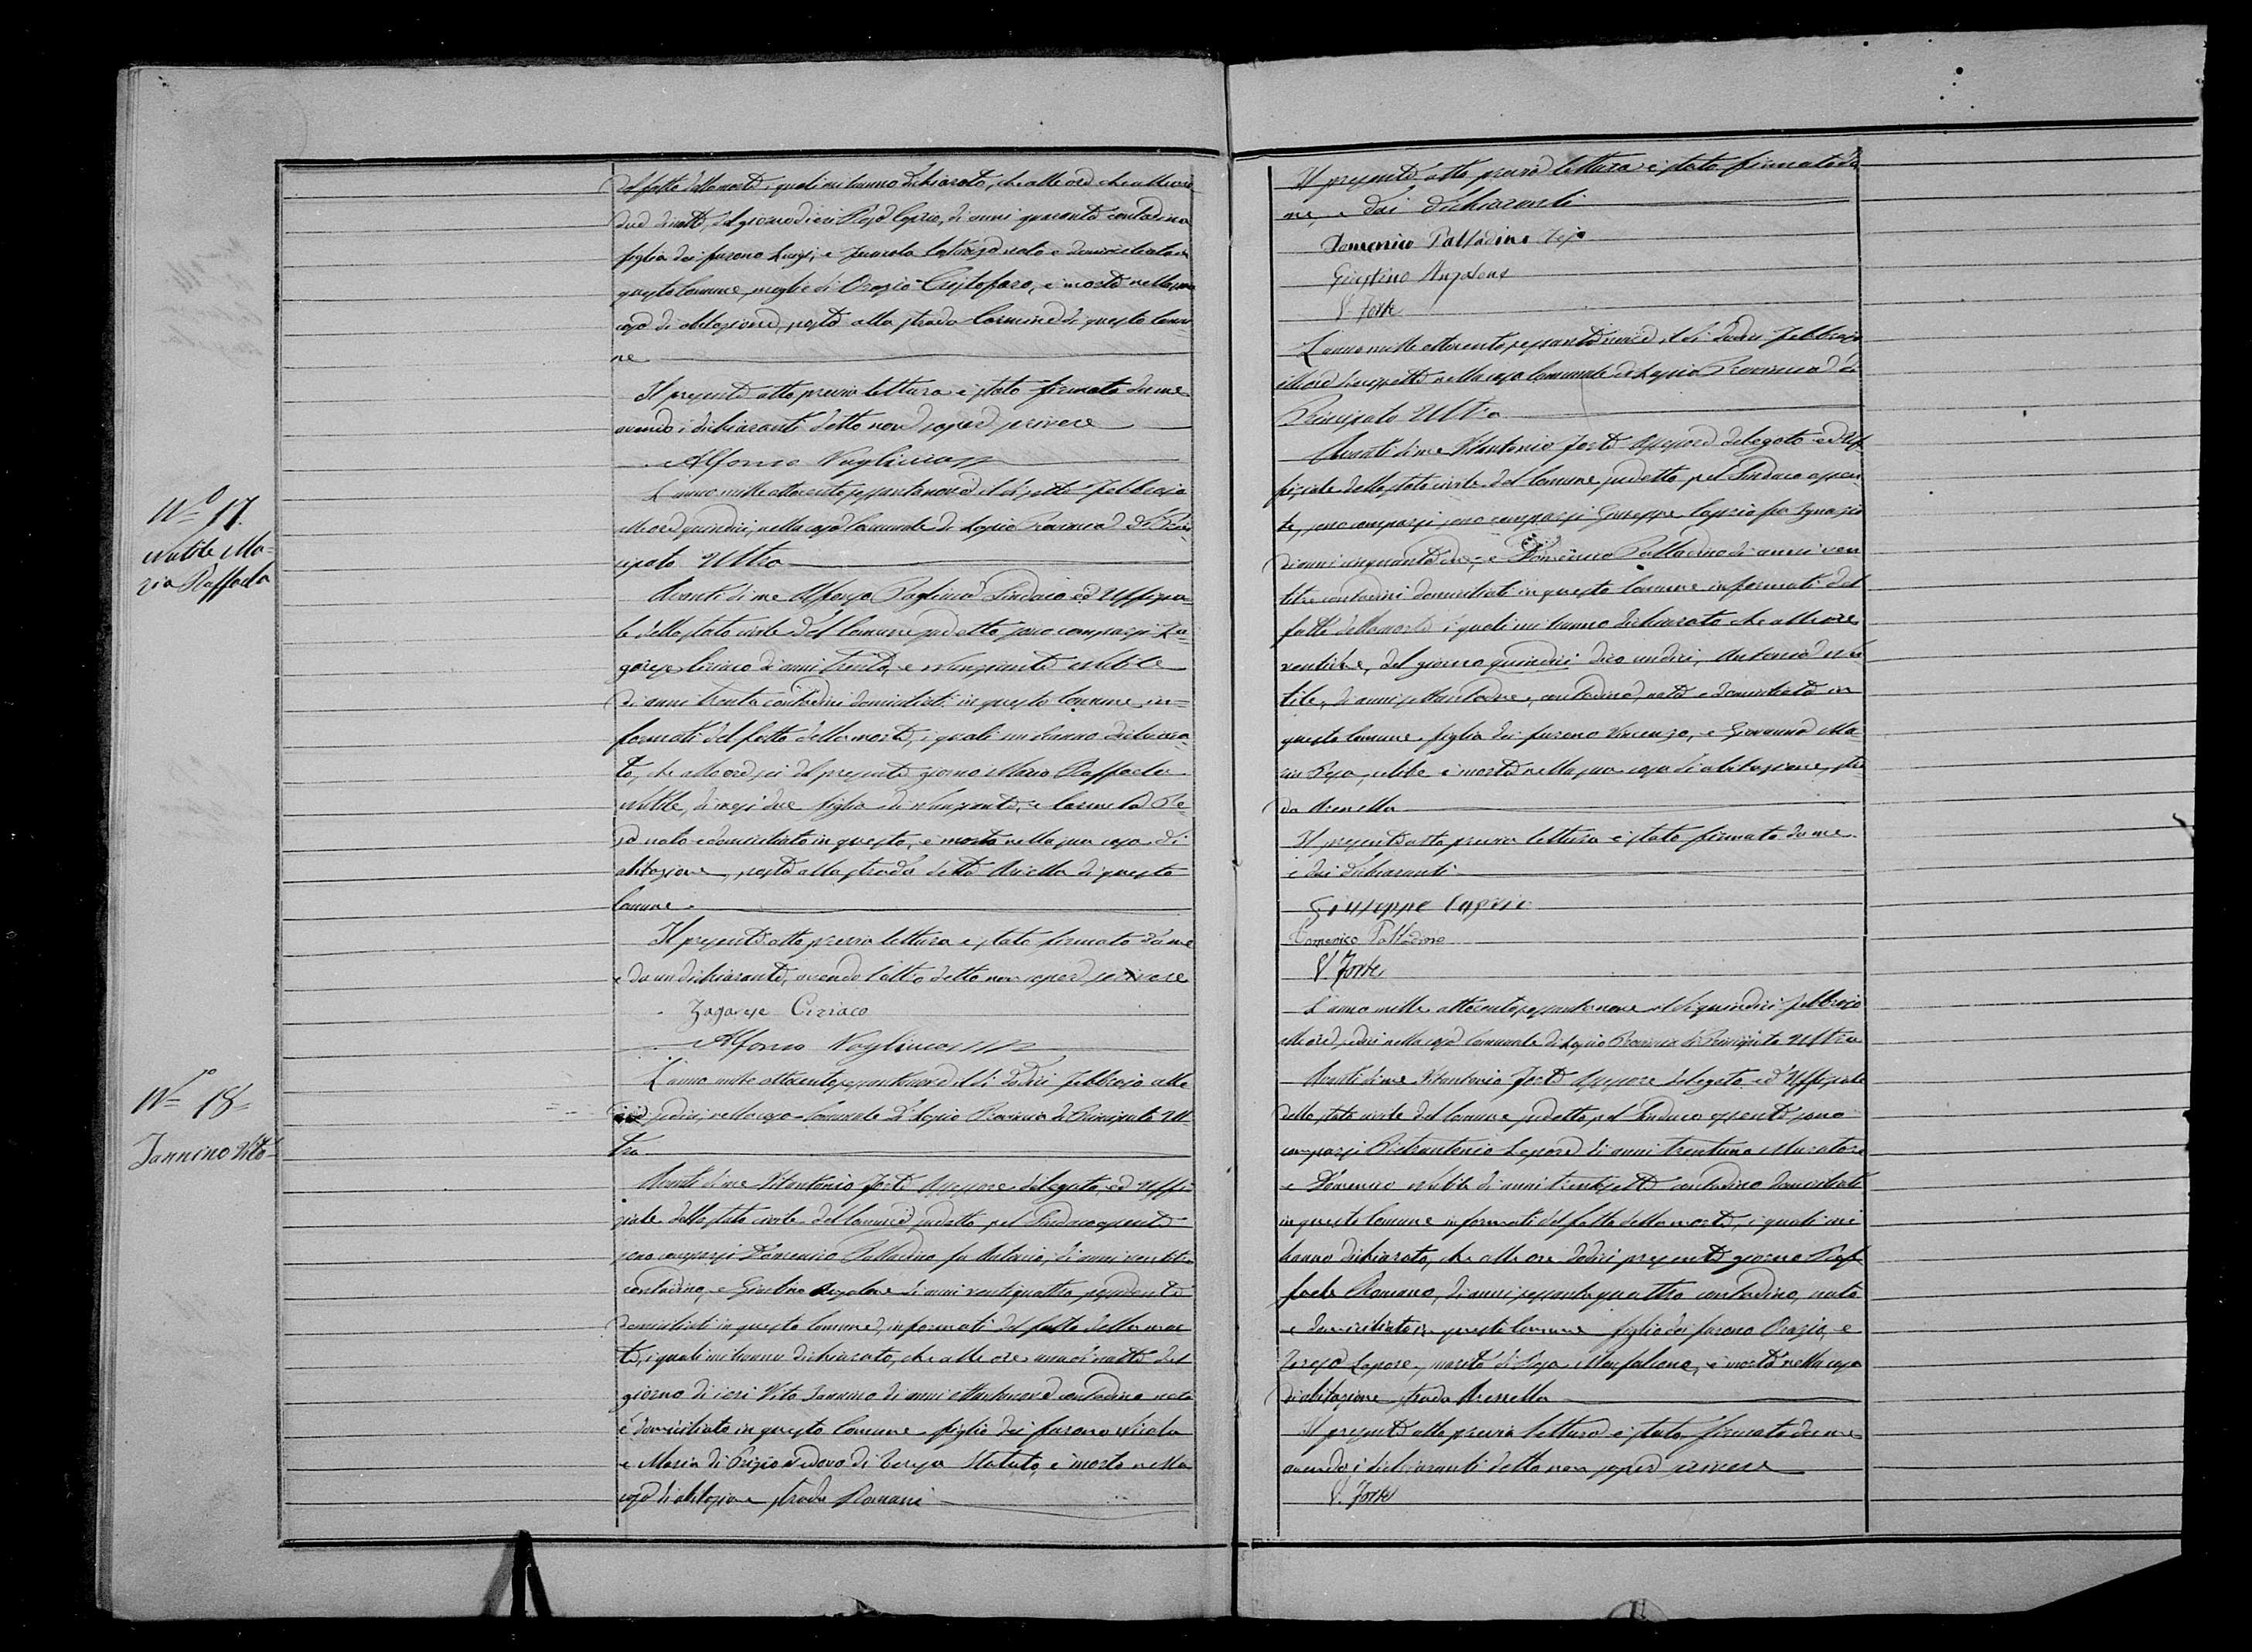 del fatto della morte, i quali mi hanno dichiarato, che alle ore che alle ore
due di notte, del giorno dieci Rosa Caprio, di anni quaranta contadina
figlia dei furono Luigi, e nata e domiciliata in
questo Comune, moglie di Orazio Cristofaro, è morta nella sua
casa di abitazione, posta alla strada Carmine di questo Comu-
ne
Il presente atto previa lettura è stato firmato da me
avendo i dichiaranti detto non sapere scrivere
Alfonso Vagliuca
N.º 17.
Nutile Ma-
ria Raffaela
L'anno mille ottocento sessantanove il dì sette Febbrajo
alle ore quindici, nella casa Comunale di Lapio Provincia di Prin-
cipato Ultra
Avanti di me Alfonso Vagliuca Sindaco ed Uffizia-
le dello stato civile del Comune sudetto sono comparsi Za-
garese Ciriaco di anni trenta, e Nunziante Nutile
di anni trenta contadini domiciliati in questo Comune, in-
formati del fatto della morte, i quali mi hanno dichiara-
to, che alle ore sei del presente giorno Maria Raffaela
Nutile, di mesi due figlia di Nunziante, e Carmela Re-
sa nata e domiciliata in questo, è morta nella sua casa di
abitazione, posta alla strada detta Ariella di questo
Comune.
Il presente atto previa lettura è stato firmato da me
e da un dichiarante, avendo l'altro detto non sapere scrivere
Zagarese Ciriaco
Alfonso Vagliuca
N.º 18
Jannino Vito
L'anno mille ottocento sessantanove il dì dodici Febbrajo alle
ore sedici, nella casa Comunale di Lapio Provincia di Principato Ul-
tra
Avanti di me Vitantonio Forte Assessore delegato, ed Uffi-
ziale dello stato civile del Comune sudetto pel Sindaco assente
sono comparsi Domenico Palladino fu Antonio, di anni ventitre
contadino, e Giustino Anzalone di anni ventiquattro,
domiciliati in questo Comune, informati del fatto della mor-
te, i quali mi hanno dichiarato, che alle ore una di notte del
giorno di ieri Vito Jannino di anni contadino nato
e domiciliato in questo Comune figlio dei furono Nicola
e Maria di Prizio vedovo di Teresa Statuto, è morto nella
casa di abitazione strada Romani
Il presente atto previa lettura è stato firmato da
me, e dai dichiaranti
Domenico Palladino
Giustino Anzalone
V. Forte
L'anno mille ottocento sessantanove, il dì dodici Febbrajo
alle ore diciassette nella casa Comunale di Lapio Provincia di
Principato Ultra
Avanti di me Vitantonio Forte Assessore delegato ed Uf-
fiziale dello stato civile del Comune sudetto, pel Sindaco assen-
te, sono comparsi sono comparsi Giuseppe Caprio fu Ignazio
di anni cinquantadue, e Domenico Palladino di anni ven-
titre contadini domiciliati in questo Comune informati del
fatto della morte i quali mi hanno dichiarato che alle ore
ventitre, del giorno quindici dico undici, Antonia Nu-
tile, di anni settantadue, contadina, nata e domiciliata in
questo Comune figlia dei furono Vincenzo, e Giovanna Ma-
ria Resa, nubile è morta nella sua casa di abitazione, stra-
da Arenella
Il presente atto previa lettura è stato firmato da me
e dai dichiaranti
Giuseppe Caprio
Domenico Palladino
V. Forte
L'anno mille ottocento sessantanove il dì quindici Febbrajo
alle ore sedici nella casa Comunale di Lapio Provincia di Principato Ultra
Avanti di me Vitantonio Forte Assessore delegato, ed Uffiziale
dello stato civile del Comune sudetto pel Sindaco assente sono
comparsi Pietrantonio Lepore di anni trentuno Muratore
e Domenico Nutile di anni trentasette contadino domiciliati
in questo Comune informati del fatto della morte, i quali mi
hanno dichiarato, che alle ore dodici presente giorno Raf-
faele Romano, di anni sessantaquattro contadino, nato
e domiciliato in questo Comune figlio dei furono Orazio, e
Teresa Lepore, marito di Rosa Manfalione, è morto nella casa
di abitazione strada Arenella
Il presente atto previa lettura è stato firmato da me
avendo i dichiaranti detto non sapere scrivere
V. Forte